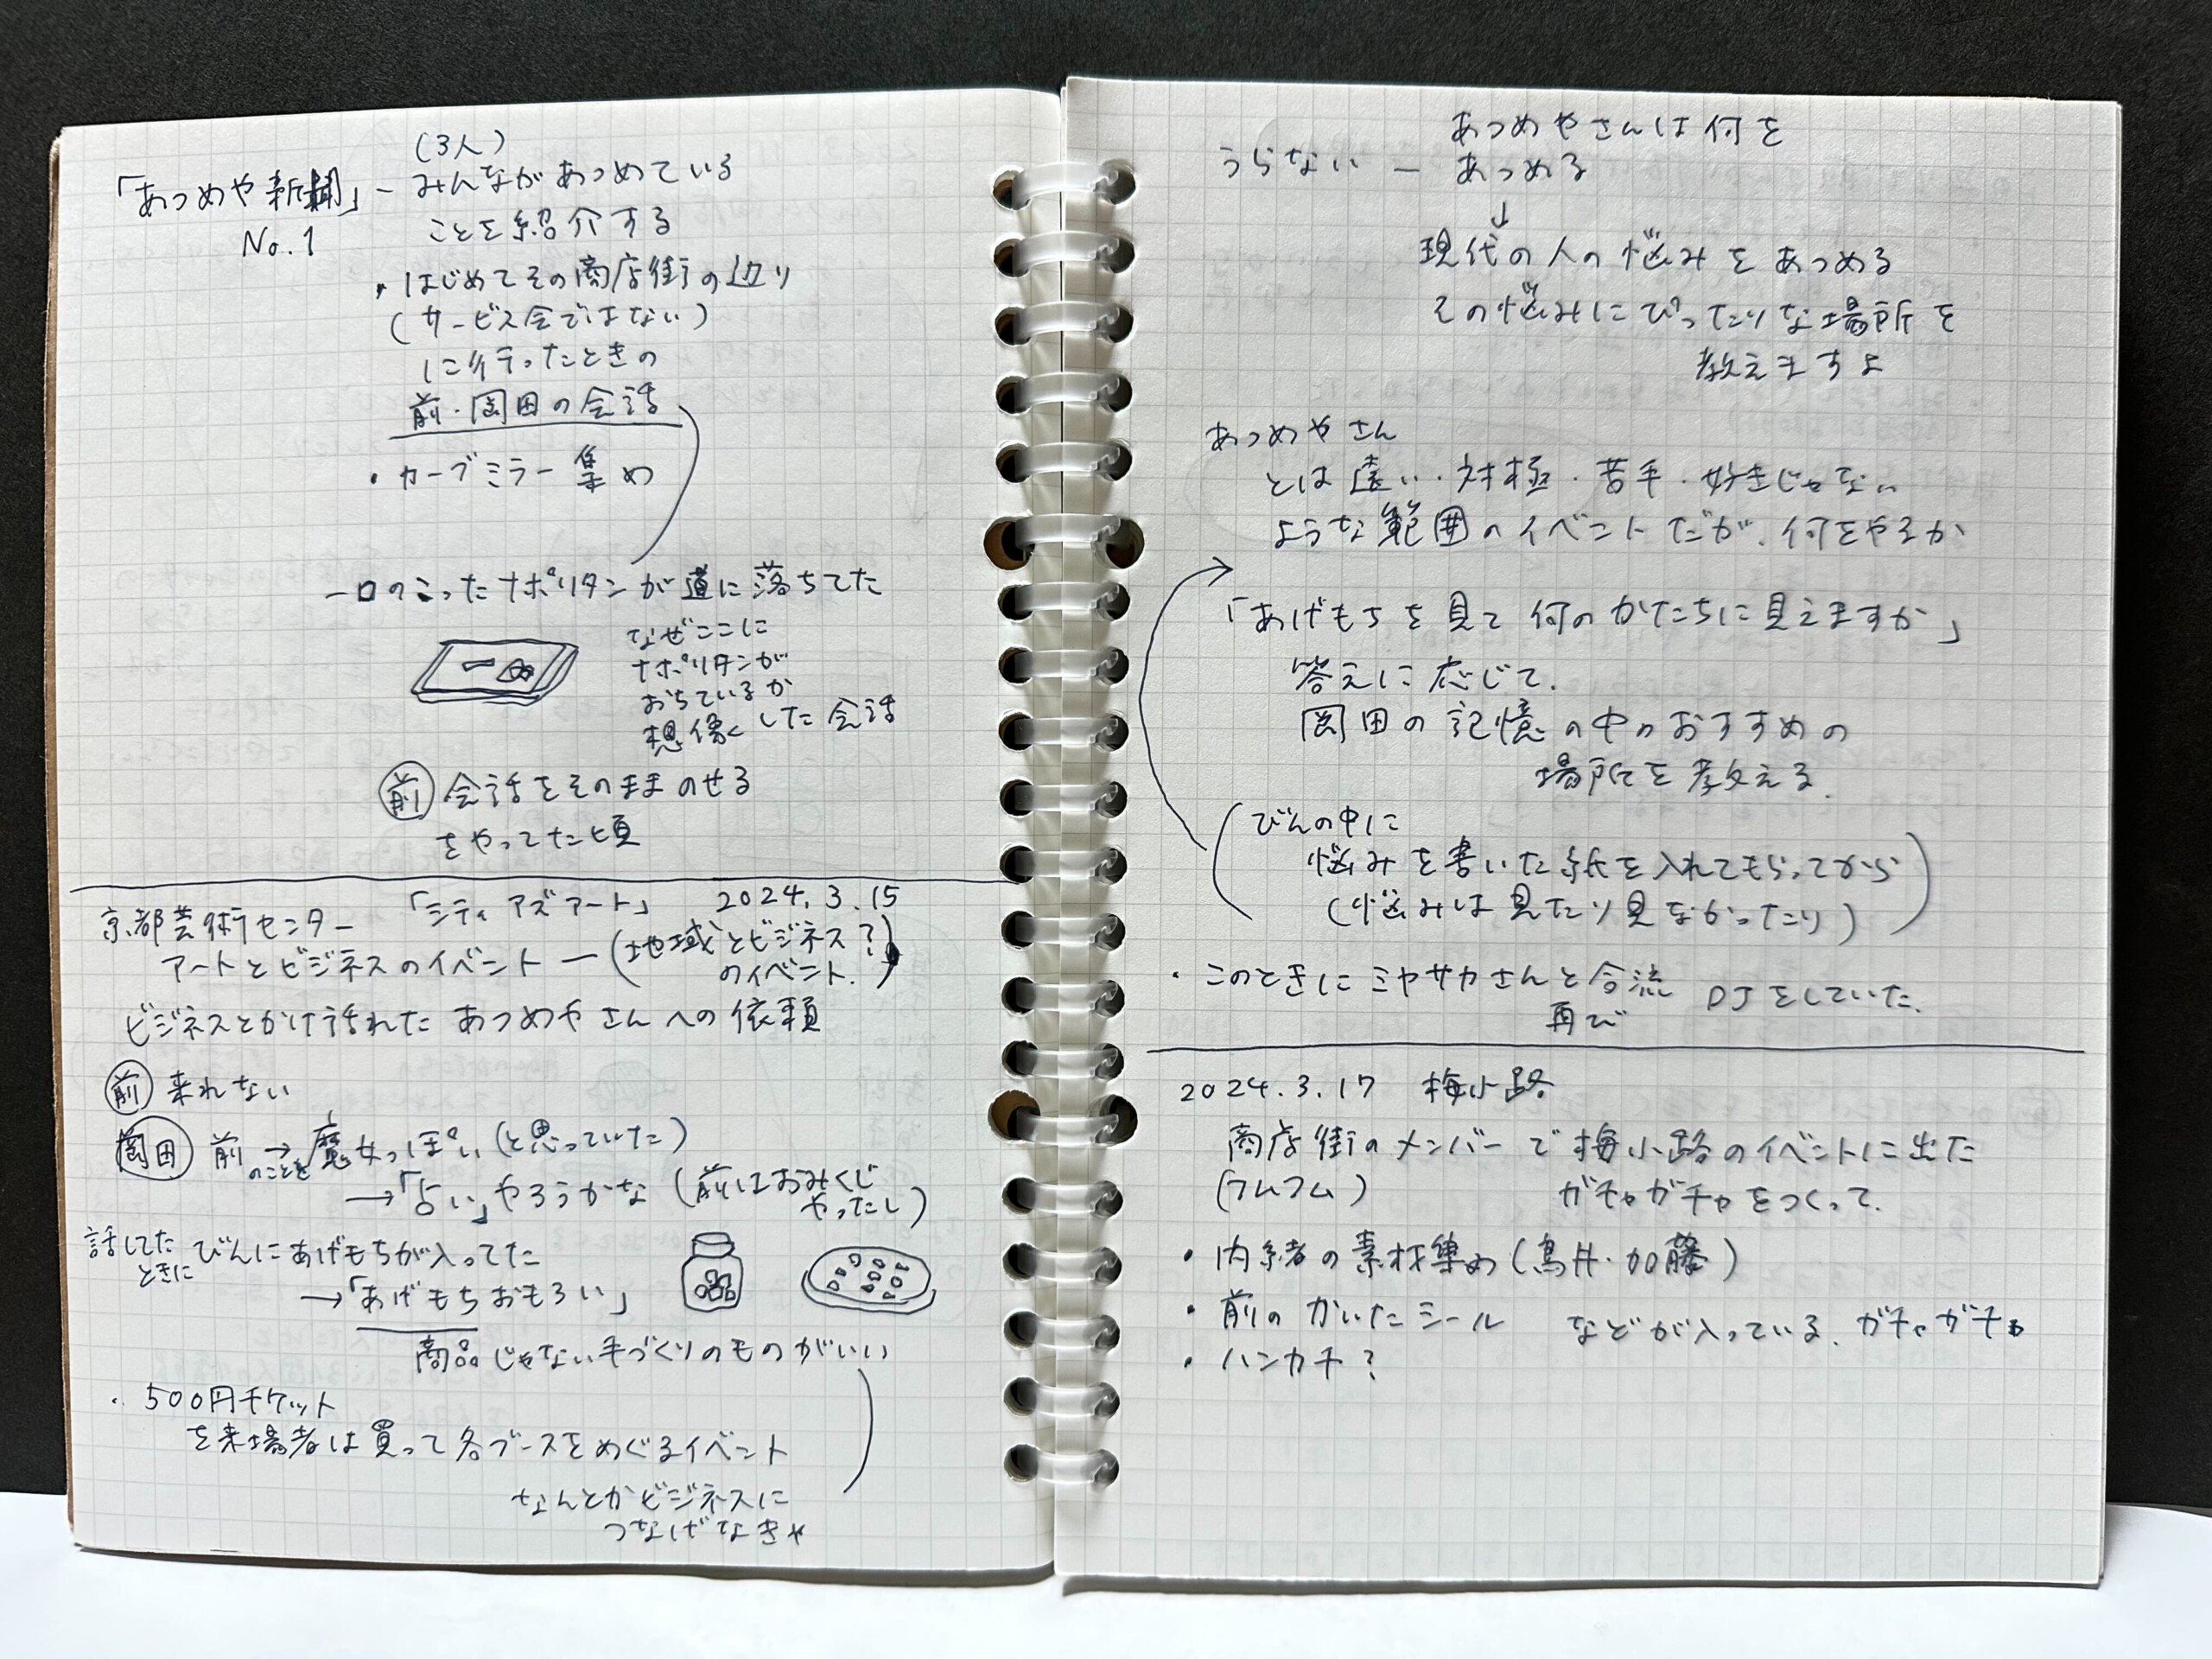 (3人)
「あつめや新聞」－みんながあつめている
No.1
ことを紹介する
・はじめてその商店街の辺り
(サービス会ではない)
に行ったときの
前・岡田の会話
・カーブミラー集め
一口のこったナポリタンが道に落ちてた
なぜここに
ナポリタンが
おちているか
想像した会話
前 会話をそのままのせる
をやってた頃
「シティアズアート」 2024.3.15
京都芸術センター
アートとビジネスのイベント－(地域とビジネス?
のイベント.)
ビジネスとかけ話れた あつめやさんへの依頼
前 来れない
岡田 前のことを→魔女っぽい(と思っていた)
→「占い」やろうかな (前はおみくじ
やったし)
話してた
ときに
びんにあげもちが入ってた
→「あげもちおもろい」
商品じゃない手づくりのものがいい
・500円チケット
を来場者は買って各ブースをめぐるイベント
なんとかビジネスに
つなげなきゃ
あつめやさんは何を
うらない － あつめる
↓
現代の人の悩みをあつめる
その悩みにぴったりな場所を
教えますよ
あつめやさん
とは遠い・対極・苦手・好きじゃない
ような範囲のイベントだが、何をやるか
「あげもちを見て何のかたちに見えますか」
答えに応じて、
岡田の記憶の中のおすすめの
場所を教える.
(びんの中に
悩みを書いた紙を入れてもらってから
(悩みは見たり見なかったり))
・このときにミヤサカさんと合流 DJをしていた.
再び
2024.3.17 梅小路
商店街のメンバーで梅小路のイベントに出た
(フムフム) ガチャガチャをつくって.
・内緒者の素材集め(鳥井・加藤)
・前のかいたシール などが入っている. ガチャガチャ
・ハンカチ?